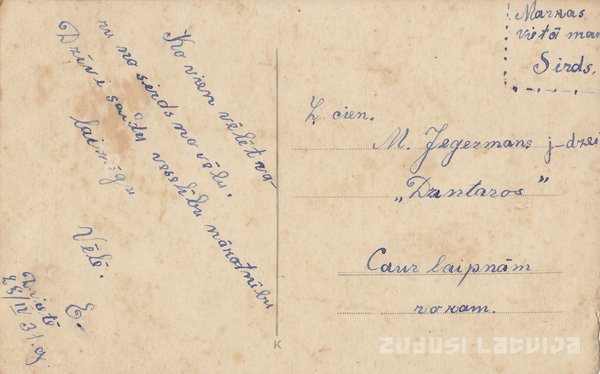 Ko vien vēlēt va-
ru no sirds no vēlu.
Dzīvi saulu veselību nākotnību
laimīgu
Vēlē.
E.
25/IV 31.g
Markas
vietā man
Sirds.
Z. cien.
M. Jegermans j-dzei
„Dzintaros"
Caur laipnām
rokam.
K
ZUDUSI LATVIJA